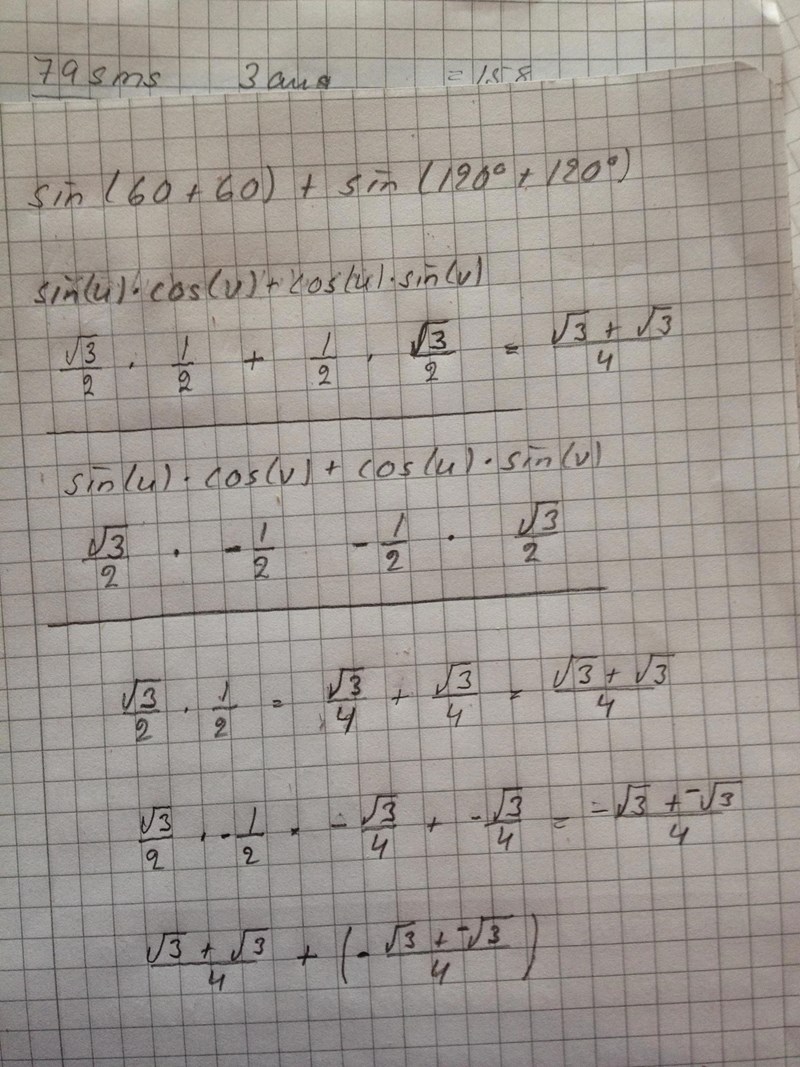 79 sms 3
sin (60 + 60) + sin (120° + 120°)
sin(u) · cos(v) + cos(u) · sin(v)
√3/2 · 1/2 + 1/2 · √3/2 = (√3 + √3)/4
sin(u) · cos(v) + cos(u) · sin(v)
√3/2 · -1/2 -1/2 · √3/2
√3/2 · 1/2 = √3/4 + √3/4 = (√3 + √3)/4
√3/2 · -1/2 = -√3/4 + -√3/4 = (-√3 + -√3)/4
(√3 + √3)/4 + (-(√3 + -√3)/4)